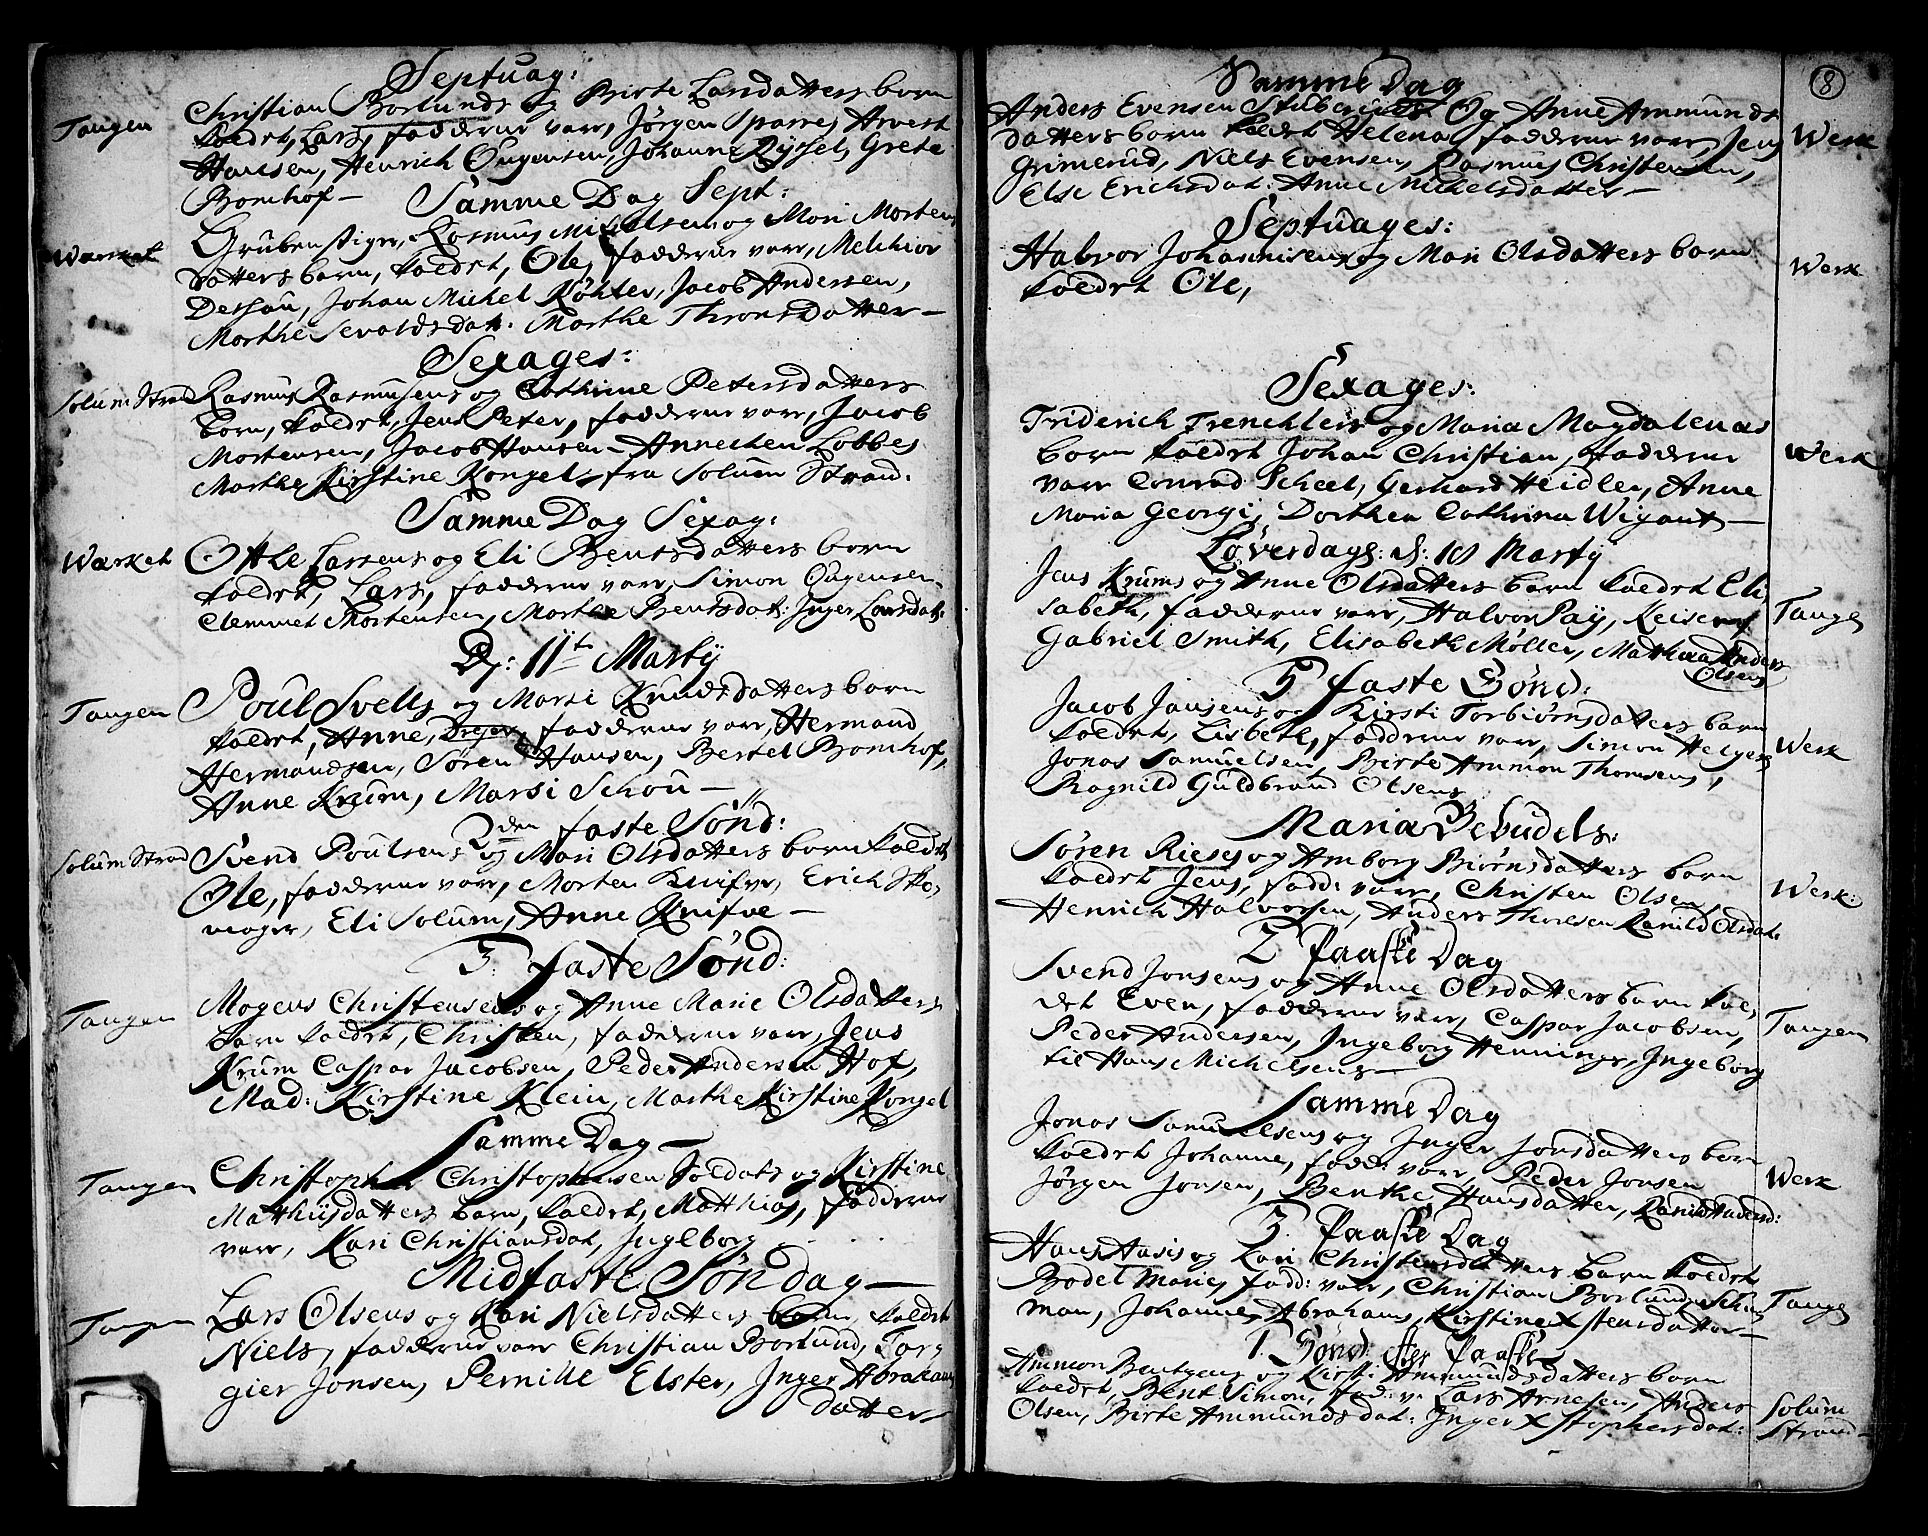 Septuag:
Tangen
Christian Borlunds og Birte Larsdatters born
kaldet, Lars, fadderne var, Jørgen Sparre, Arvest
Hansen, Henrich Ougensen, Johanne Ryssel, Grete
Bomhof —
Samme Dag Sept:
Wærket
Grubenstiger, Rasmus Michelsens og Mari Mortens
datters barn, kaldet, Ole, fadderne var, Melchior
Dessau, Johan Michel Köhler, Jacob Andersen,
Marthe Sevaldsdat: Marthe Thronsdatter —
Sexages:
Solum Strand
Rasmus Rasmusens og Cathrine Petersdatters
born, kaldet, Jens Peter, fadderne var, Jacob
Mortensen, Jacob Hansen, Annichen Lobbes
Marthe Kirstine Kongel, fra Solum Strand.
Samme Dag Sexag:
Wærket
Ottle Larsens og Eli Bentsdatters born
kaldet, Lars, fadderne var, Simon Ougensen
Clemmet Mortensen, Marthe Bentsdat: Inger Larsdat:
D: 11te Marty
Tangen
Poul Svells og Marsi Knudsdatters born
kaldet, Anne, fadderne var, Hermand
Hermandsen, Søren Hansen, Bertel Bomhof,
Anne Krum, Marsi Schou —
2den faste Sønd:
Solum Strand
Svend Poulsens og Mari Olsdatters born kaldet
Ole, fadderne var, Morten Knifve, Erich Sko,
mager, Eli Solum, Anne Knifve —
3. faste Sønd:
Tangen
Mogens Christensens og Anne Marie Olsdatters
barn kaldet, Christen, fadderne var, Jens
Krum Caspar Jacobsen, Peder Andersen Hof,
Mad: Kirstine Klein, Marthe Kirstine Kongel
Samme Dag —
Tangen
Christopher Christophersen Soldats og Kirstine
Mathiisdatters barn, kaldet, Matthias, fadderne
var, Kari Christiansdat, Ingeborg . . . .
Midfaste Søndag —
Tangen
Lars Olsens og Kari Nielsdatters barn, kaldet
Niels, fadderne var Christian Borlund, Tor
gier Jonsen, Pernille Elster, Inger Abrahams
datter —
8
Samme Dag
Werk
Anders Evensen Og Anne Ammunds
datters born kaldet Helena, fadderne var, Jens
Grimerud, Niels Evensen, Rasmus Christensen,
Else Erichsdat: Anne Michelsdatter —
Septuages:
Werk
Halvor Johannisens og Mari Olsdatters barn
kaldet Ole,
Sexages:
Werk
Friderich Trenchlers og Maria Magdalenas
born kaldet Johan Christian, fadderne
var Conrad Scheel, Gerhard Heidler, Anne
Maria Georgi, Dorthea Cathrina Wigant —
Løverdags: d: 10 Marty
Tangen
Jens Krums og Anne Olsdatters born kaldet Eli
sabeth, fadderne var, Halvor Pay, Keisers,
Gabriel Smith, Elisabeth Møller, Mathia Anders
Olsens
3 faste Sønd:
Werk
Jacob Jansens og Kirsti Torbiørnsdatters barn
kaldet, Lisbeth, fadderne var, Simon Helgers
Jonas Samuelsen, Birte Ammon Thomsens,
Ragnild Guldbrand Olsens
Maria Bebudels:
Werk:
Søren Rieses og Amborg Biørnsdatters born
kaldet Jens, fadd: var, Christen Olsen,
Henrich Halvorsen, Anders Thoresen Ranild Olsdat:
2 Paaske Dag
Tangen
Svend Jonsens og Anne Olsdatters born kal,
det Even, fadderne var, Caspar Jacobsen,
Peder Andersen, Ingeborg Hennings, Ingeborg
til Hans Michelsens —
Samme Dag
Werk
Jonas Samuelsens og Inger Jonsdatters born
kaldet Johanne, fadd: var, Peder Jonsen
Jørgen Jonsen, Benthe Hansdatter, Ranild Andersd:
3 Paaske Dag
Tangen
Hans Hasis og Kari Christensdatters barn kaldet
Bodel Marie, fadd: var, Christian Borlund,
man, Johanne Abrahams, Kirstine Xstensdatter —
1. Sønd: efter Paaske
Solum
Strand —
Ammon Bentsens og Kirsti Ammundsdatters born
kaldet, Bent Simon, fad: v: Lars Arnesen, Anders
Olsen, Birte Ammunds dat: Inger Xstophersdat: